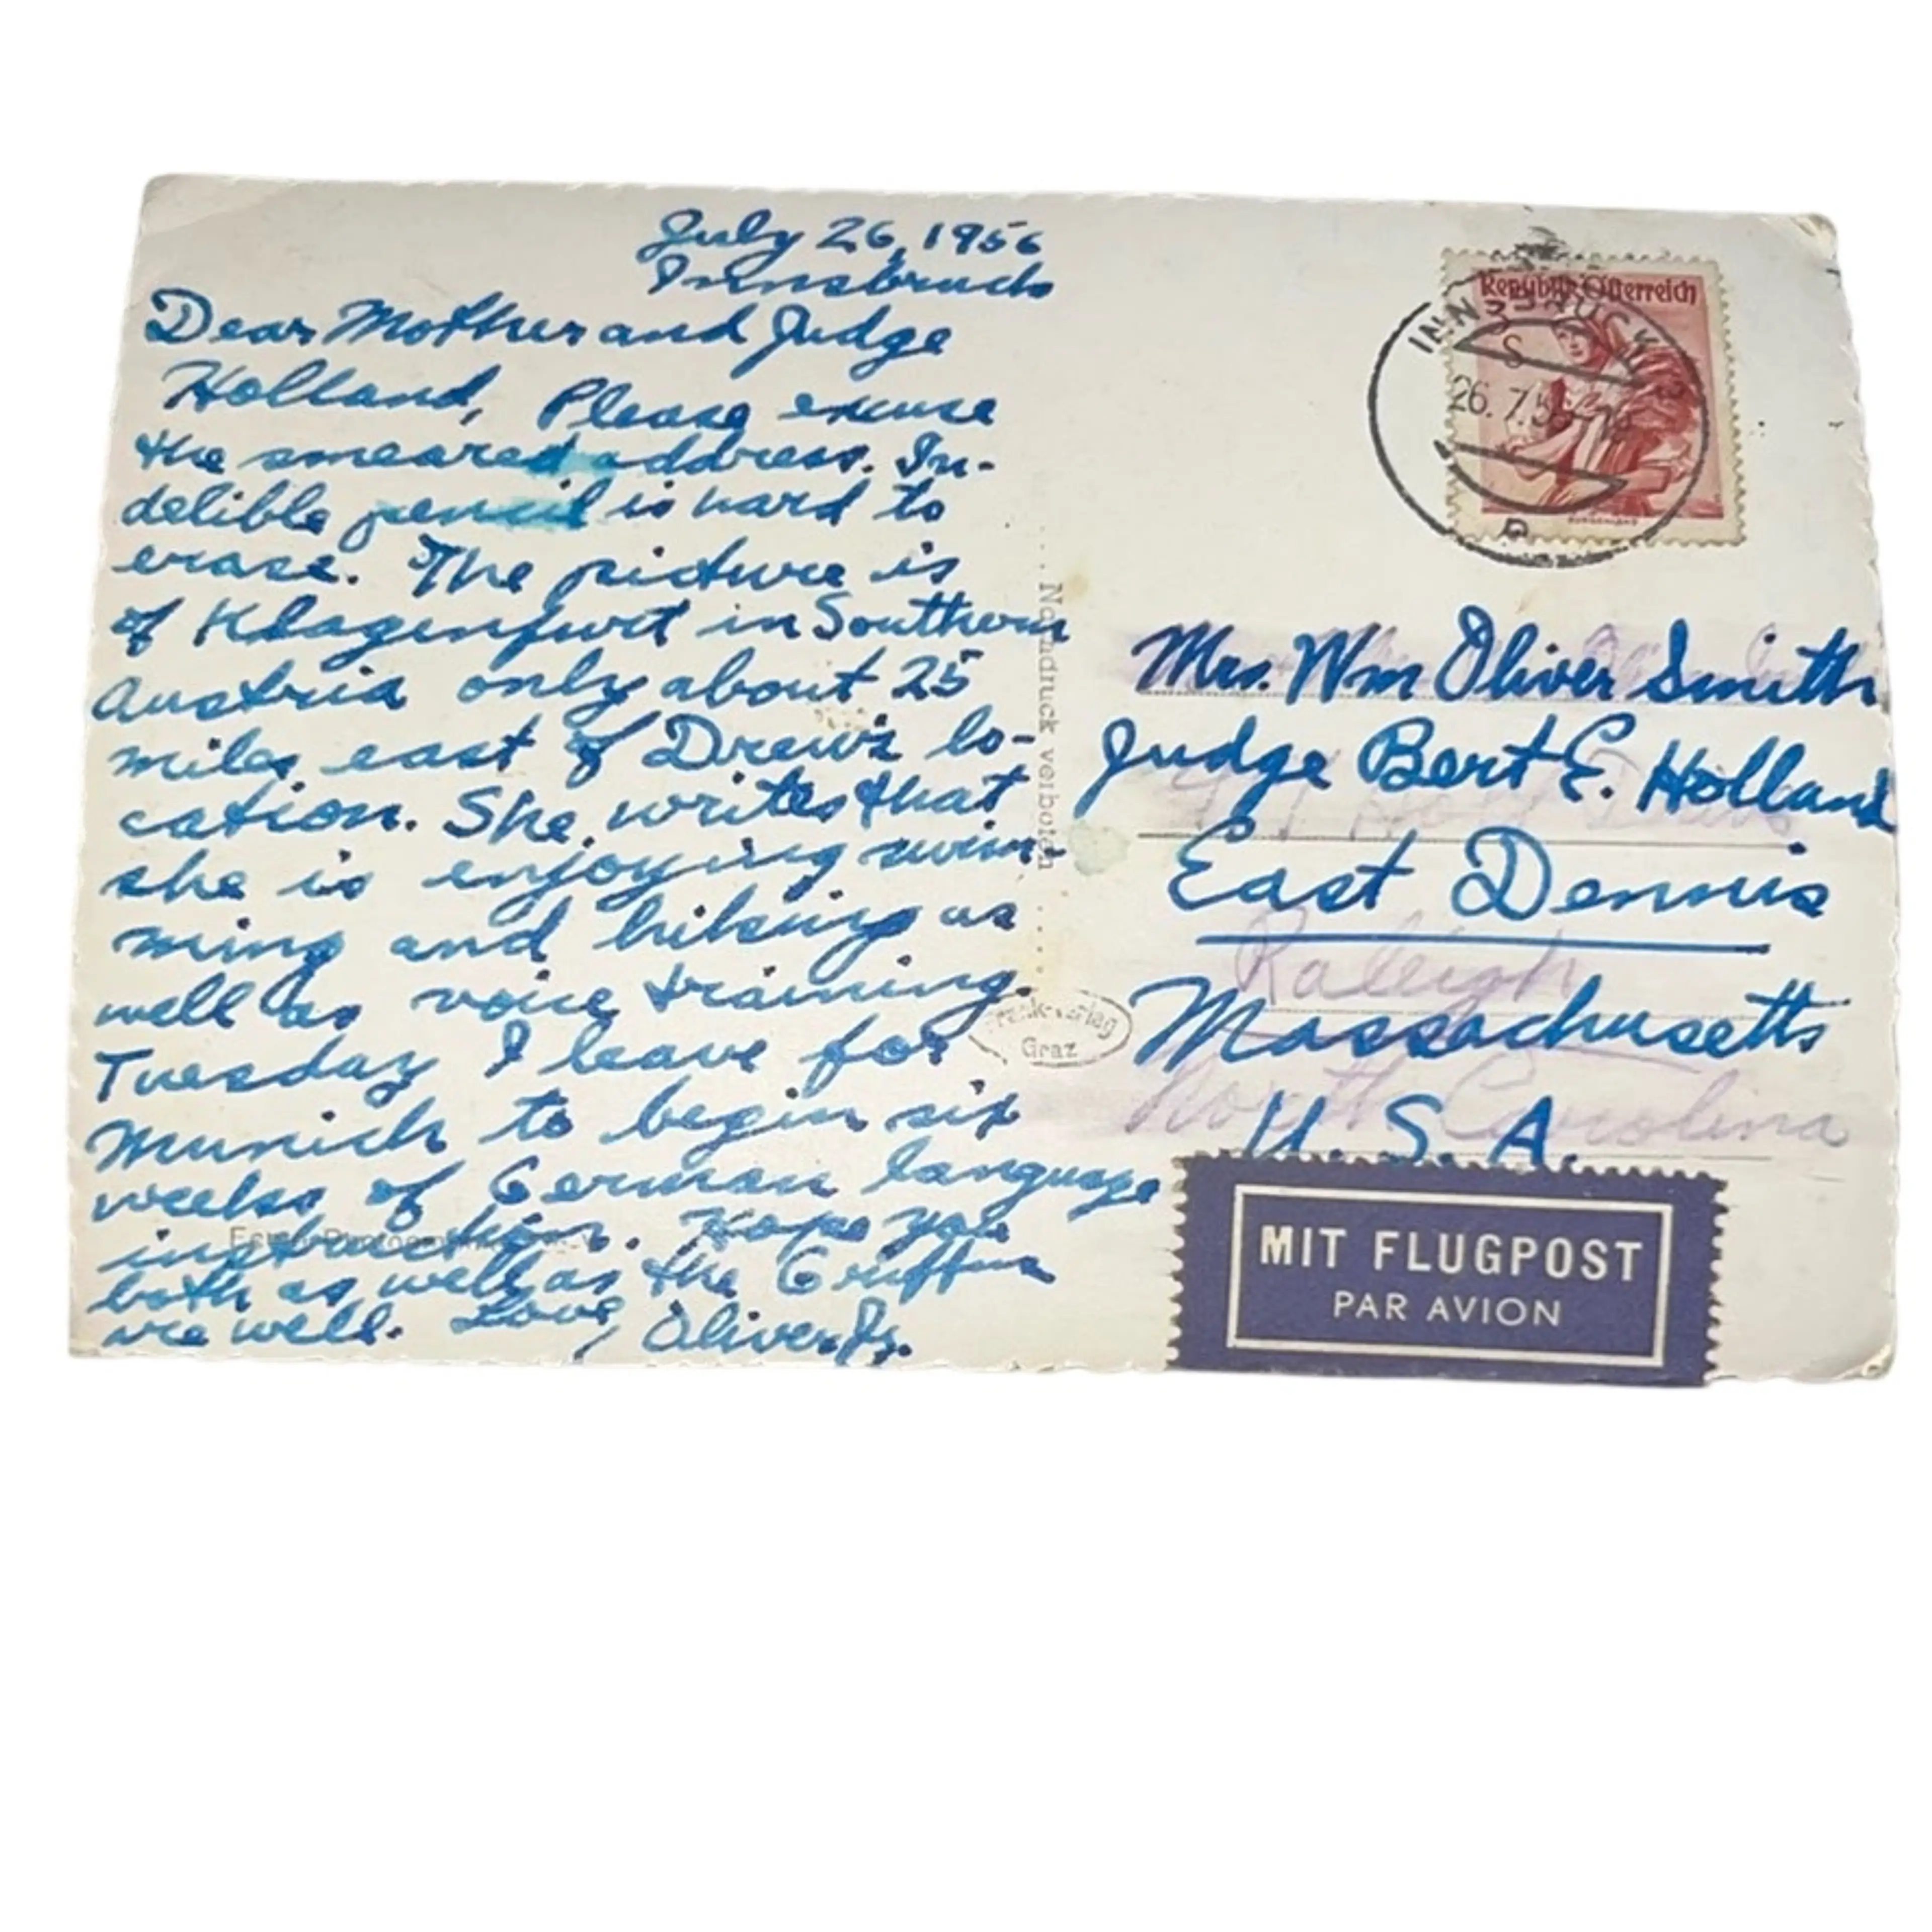 July 26, 1956
Innsbruck
Dear Mother and Judge
Holland, Please excuse
the smeared address. In-
delible pencil is hard to
erase. The picture is
of Klagenfurt in Southern
Austria only about 25
miles east of Drew's lo-
cation. She writes that
she is enjoying swim-
ming and hiking as
well as voice training.
Tuesday I leave for
Munich to begin six
weeks of German language
instruction. Hope you
both as well as the Griffins
are well. Love, Oliver Jr.
Nachdruck verboten
Graz
Republik Österreich
S
INNSBRUCK
26. 7. 56
Mrs. Wm Oliver Smith
Judge Bert E. Holland
East Dennis
Raleigh
Massachusetts
North Carolina
U. S. A.
MIT FLUGPOST
PAR AVION